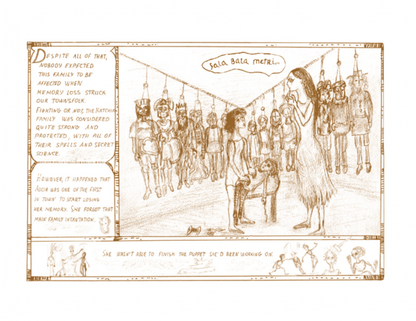 DESPITE ALL OF THAT,
NOBODY EXPECTED
THIS FAMILY TO BE
AFFECTED WHEN
MEMORY LOSS STRUCK
OUR TOWNSFOLK.
FIGHTING OR NOT, THE
FAMILY WAS CONSIDERED
QUITE STRONG AND
PROTECTED, WITH ALL OF
THEIR SPELLS AND SECRET
SCIENCE.
HOWEVER, IT HAPPENED THAT
WAS ONE OF THE FIRST
IN TOWN TO START LOSING
HER MEMORY. SHE FORGOT THAT
MAIN FAMILY
Sala Bala
SHE WASN'T ABLE TO FINISH THE PUPPET SHE'D BEEN WORKING ON.